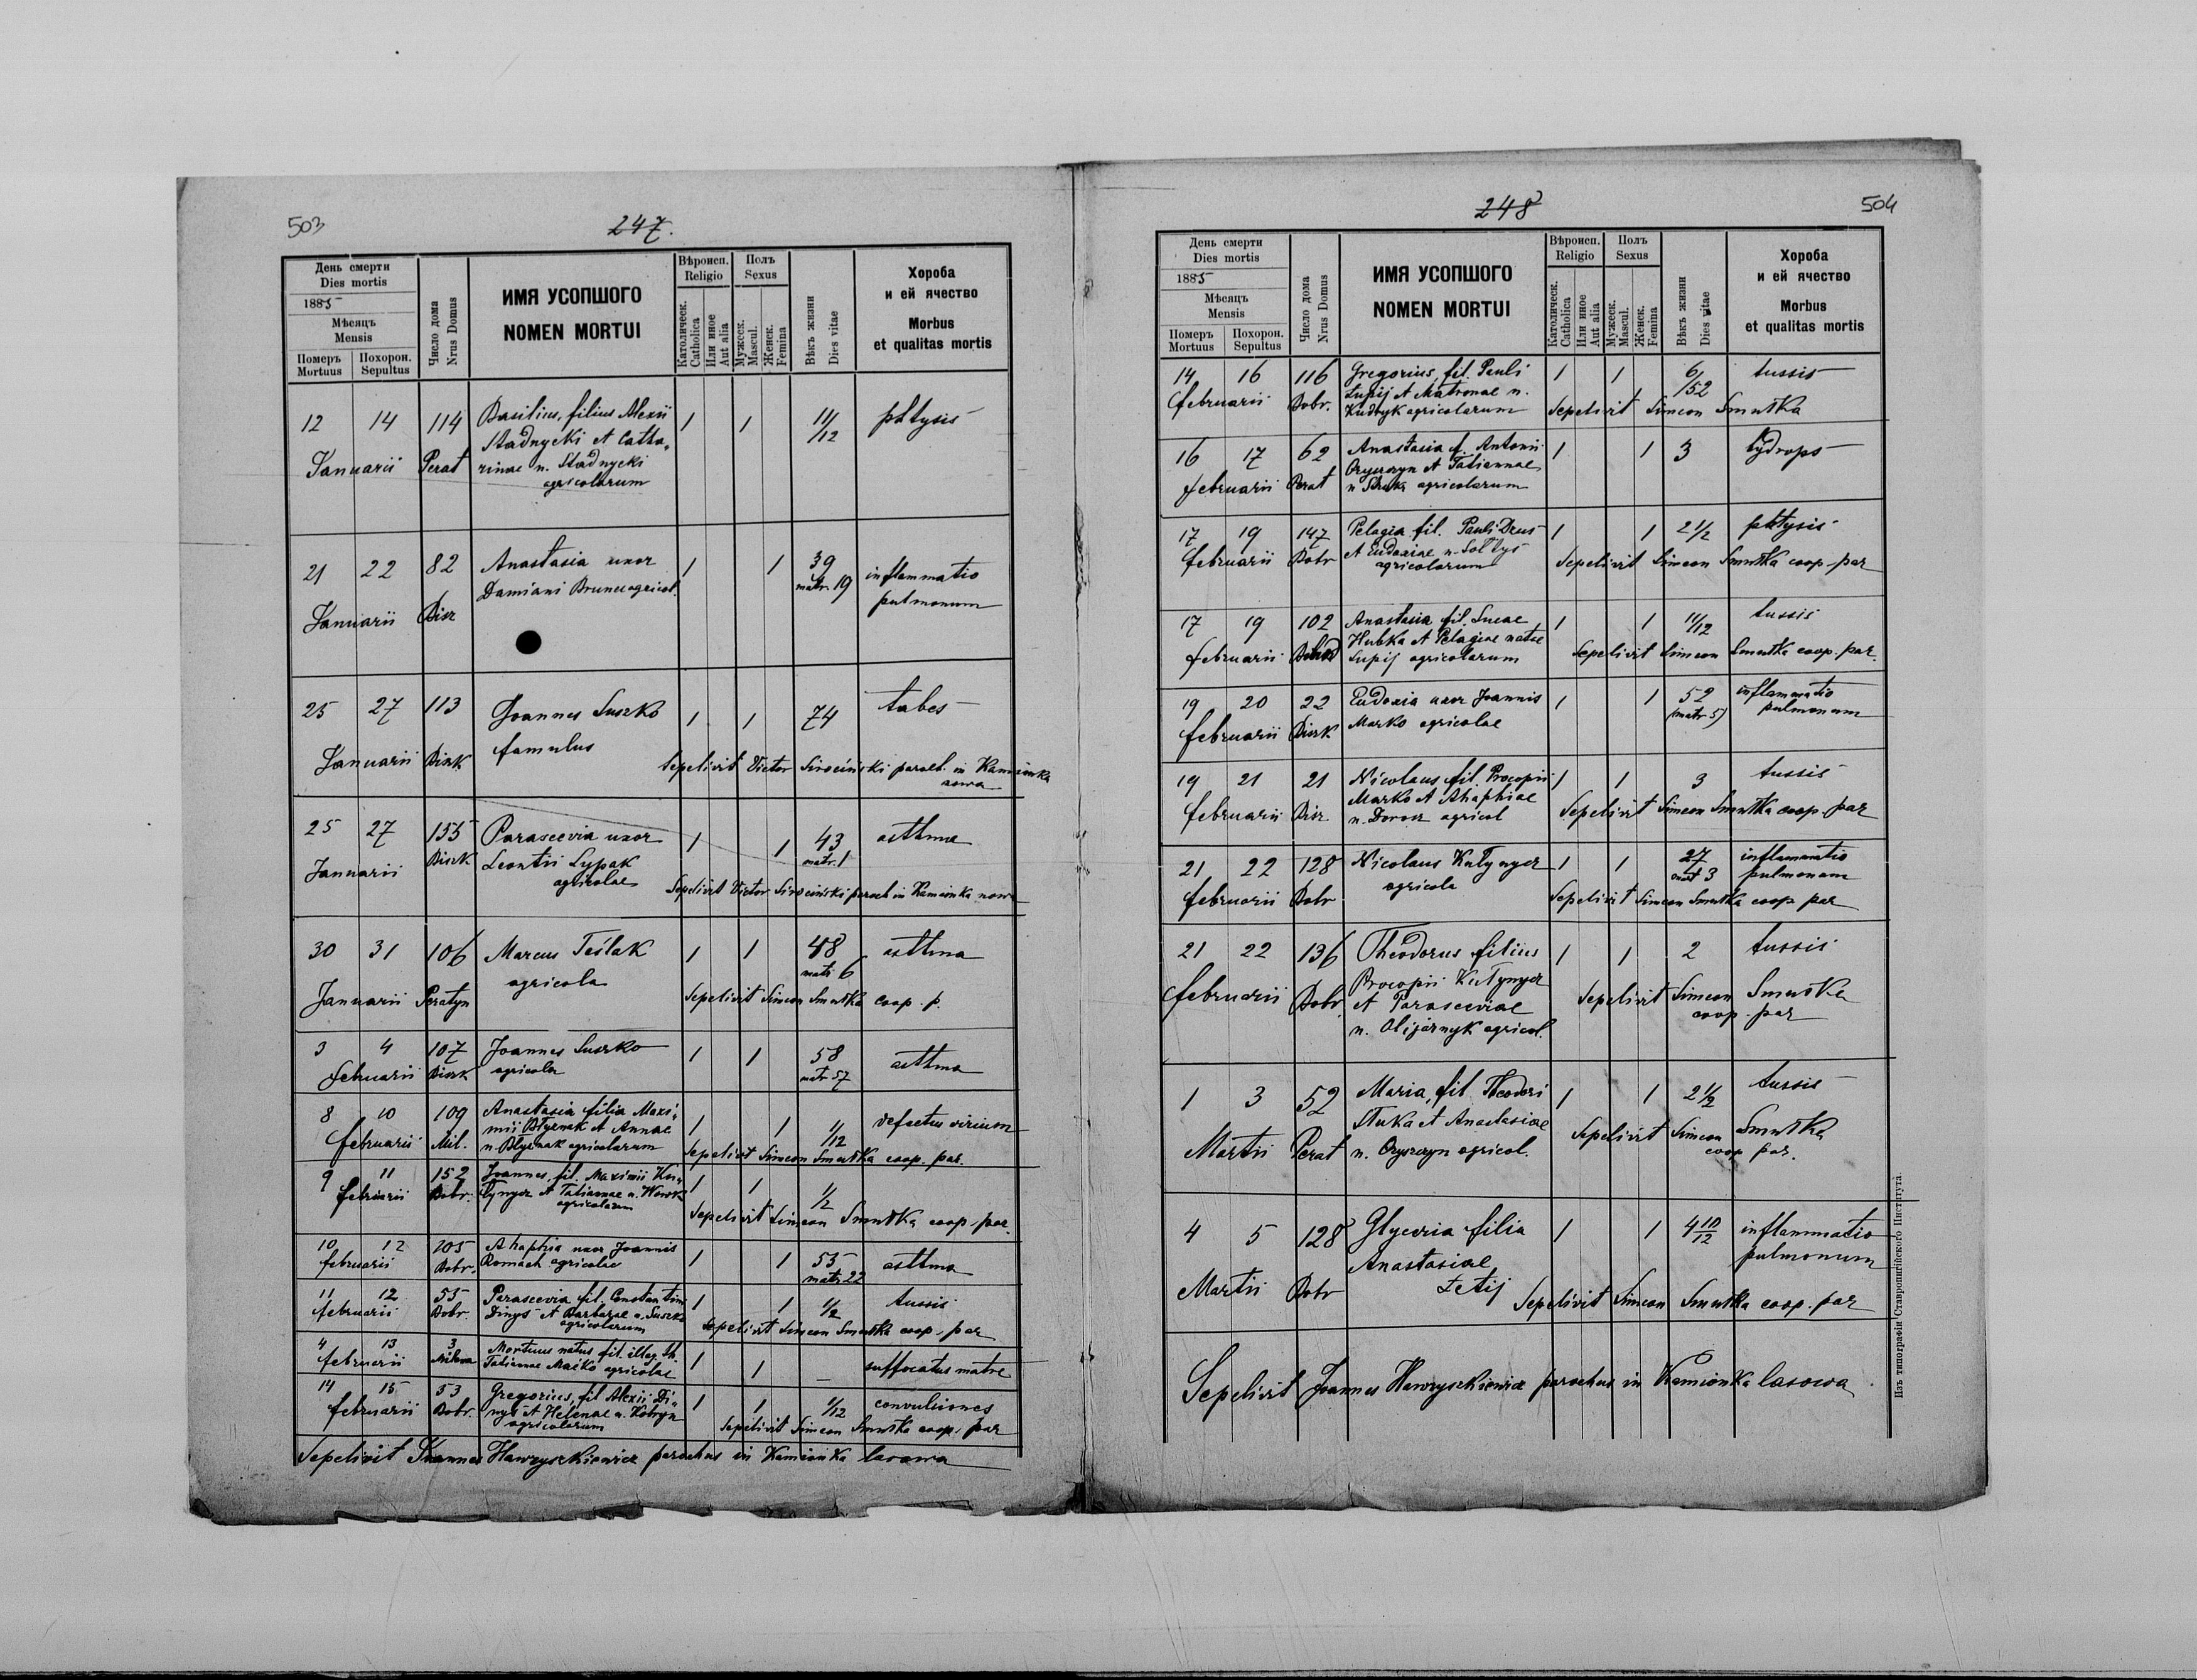 503
247.
День смерти
Dies mortis
1885
Мѣсяцъ
Mensis
Померъ
Mortuus
Похорон.
Sepultus
Число дома
Nrus Domus
ИМЯ УСОПШОГО
NOMEN MORTUI
Вѣроисп.
Religio
Католическ.
Catholica
Или иное
Aut alia
Полъ
Sexus
Мужеск.
Mascul.
Женск.
Femina
Вѣкъ жизни
Dies vitae
Хороба
и ей ячество
Morbus
et qualitas mortis
12 14 114 Basilius, filius Alexii 1 1 11/12 phtysis
Stadnycki et Catha„
Januarii Perat rinae n. Stadnycki
agricolarum
21 22 82 Anastasia uxor 1 1 39 inflammatio
Damiani agricol. matr. 19 pulmonum
Januarii Bisz
25 27 113 Joannes Suszko 1 1 74 tabes
famulus
Januarii Biszk Sepelivit Victor Sirociński paroch. in Kamionka
25 27 155 Parascevia uxor 1 1 43 asthma
Januarii Biszk Leontii Lypak matr. 1
agricolae Sepelivit Victor Sirociński paroch in Kamionka nowa
30 31 106 Marcus Teślak 1 1 48 asthma
agricola matr 6
Januarii Peratyn Sepelivit Simeon Smutka coop. p.
3 4 107 Joannes Suszko 1 1 58 asthma
februarii Biszk agricola matr 57
8 10 109 Anastasia filia Maxi„ 1 1 1/12 defectus virium
februarii Mil. mii Blyznak et Annae
n. Blyznak agricolarum Sepelivit Simeon Smutka coop. par.
9 11 152 Joannes, fil. Maximii Ku„ 1 1 1/2
februarii Dobr. tynycz et Tatiannae n. Wowk
agricolarum Sepelivit Simeon Smutka coop. par.
10 12 205 Ahaphia uxor Joannis 1 1 55 asthma
februarii Dobr. Romach agricolae matr 22
11 12 55 Parascevia fil. Constantini 1 1 1/2 tussis
februarii Dobr. Dinys et Barbarae n. Suszko
agricolarum Sepelivit Simeon Smutka coop. par
4 13 3 Mortuus natus fil. illeg. th. 1 1 — suffocatus matre
februarii Milowa Tatiannae Maśko agricolae
14 15 53 Gregorius, fil Alexii Di„ 1 1 1/12 convulsiones
februarii Dobr. nys et Helenae n. Kobryn
agricolarum Sepelivit Simeon Smutka coop. par
Sepelivit Joannes Hawryszkiewicz parochus in Kamionka lasowa
248
504
День смерти
Dies mortis
1885
Мѣсяцъ
Mensis
Померъ
Mortuus
Похорон.
Sepultus
Число дома
Nrus Domus
ИМЯ УСОПШОГО
NOMEN MORTUI
Вѣроисп.
Religio
Католическ.
Catholica
Или иное
Aut alia
Полъ
Sexus
Мужеск.
Mascul.
Женск.
Femina
Вѣкъ жизни
Dies vitae
Хороба
и ей ячество
Morbus
et qualitas mortis
14 16 116 Gregorius, fil. Pauli 1 1 6/52 tussis
februarii Dobr. Łupij et Matronae n.
Kudryk agricolarum Sepelivit Simeon Smutka
16 17 62 Anastasia f. Antonii 1 1 3 hydrops
Oryszczyn et Tatiannae
februarii Perat n agricolarum
17 19 147 Pelagia fil. Pauli Drus 1 1 2 1/2 phtysis
februarii Dobr et Eudoxiae n. Sołtys
agricolarum Sepelivit Simeon Smutka coop. par
17 19 102 Anastasia fil. Lucae 1 1 11/12 tussis
Hubka et Pelagiae natae
februarii Łupij agricolarum Sepelivit Simeon Smutka coop. par.
19 20 22 Eudoxia uxor Joannis 1 1 52 inflammatio
februarii Biszk Marko agricolae (matr 5) pulmonum
19 21 21 Nicolaus fil. Procopii 1 1 3 tussis
februarii Bisz. Marko et Ahaphiae
n. Dorosz agricol Sepelivit Simeon Smutka coop. par
21 22 128 Nicolaus Kutynycz 1 1 27 inflammatio
agricola matr 3 pulmonum
februarii Dobr Sepelivit Simeon Smutka coop par
21 22 136 Theodorus filius 1 1 2 tussis
Procopii Kutynycz
februarii Dobr. et Parasceviae Sepelivit Simeon Smutka
n. Olijarnyk agricol. coop. par
1 3 52 Maria, fil Theodori 1 1 2 1/2 tussis
Stuka et Anastasiae
Martii Perat n. Oryszczyn agricol. Sepelivit Simeon Smutka
coop par.
4 5 128 Glyceria filia 1 1 4 10/12 inflammatio
Anastasiae pulmonum
Martii Dobr Łetij Sepelivit Simeon Smutka coop. par
Sepelivit Joannes Hawryszkiewicz parochus in Kamionka lasowa
Изъ типографіи Ставропигійского Института.